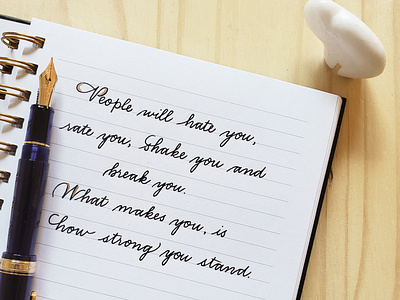 People will hate you,
rate you, Shake you and
break you.
What makes you, is
how strong you stand.